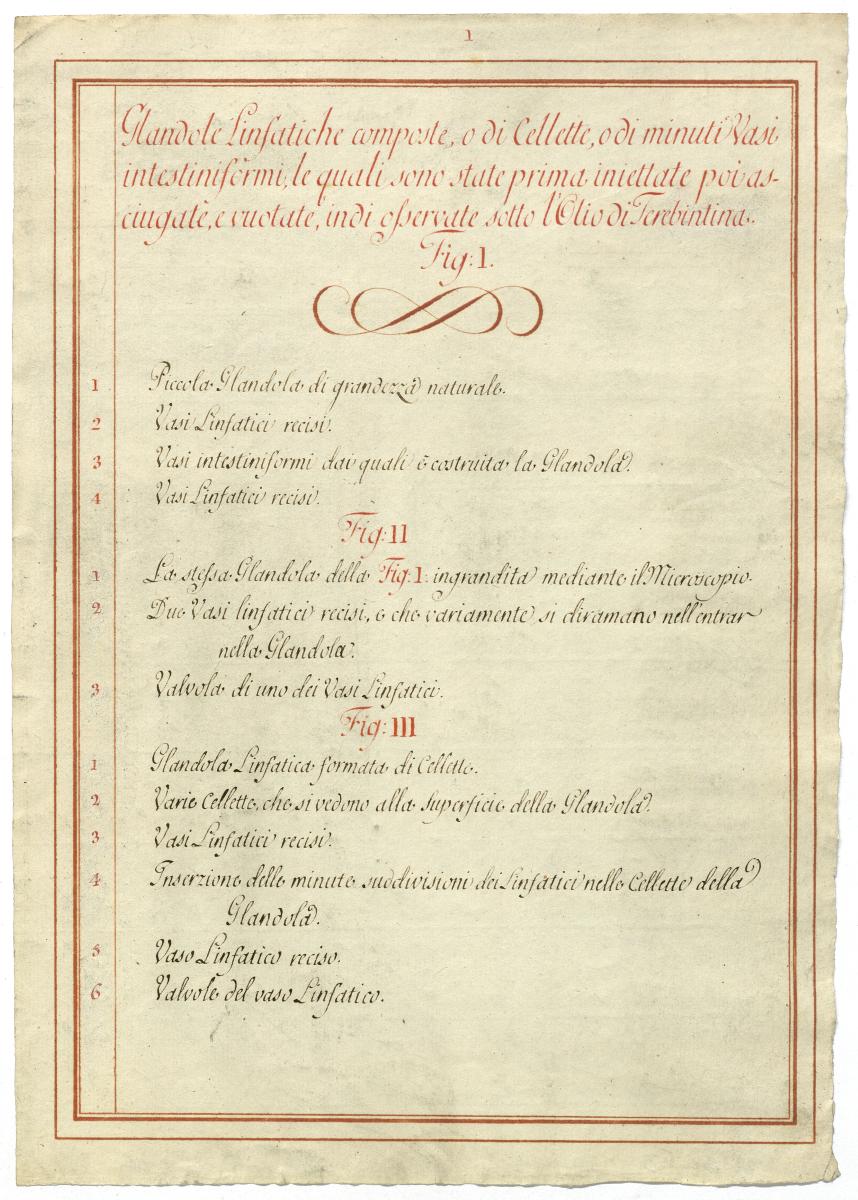 1
Glandole Linfatiche composte, o di Cellette, o di minuti Vasi
intestiniformi, le quali sono state prima iniettate poi as-
ciugate, e vuotate, indi osservate sotto l'Olio di Terebintina.
Fig: I.
1 Piccola Glandola di grandezza naturale.
2 Vasi Linfatici recisi.
3 Vasi intestiniformi dai quali è costruita la Glandola.
4 Vasi Linfatici recisi.
Fig: II
1 La stessa Glandola della Fig: I. ingrandita mediante il Microscopio.
2 Due Vasi linfatici recisi, e che variamente si diramano nell'entrar
nella Glandola.
3 Valvola di uno dei Vasi Linfatici.
Fig: III
1 Glandola Linfatica formata di Cellette.
2 Varie Cellette, che si vedono alla superficie della Glandola.
3 Vasi Linfatici recisi.
4 Inserzione delle minute suddivisioni dei Linfatici nelle Cellette della
Glandola.
5 Vaso Linfatico reciso.
6 Valvole del vaso Linfatico.